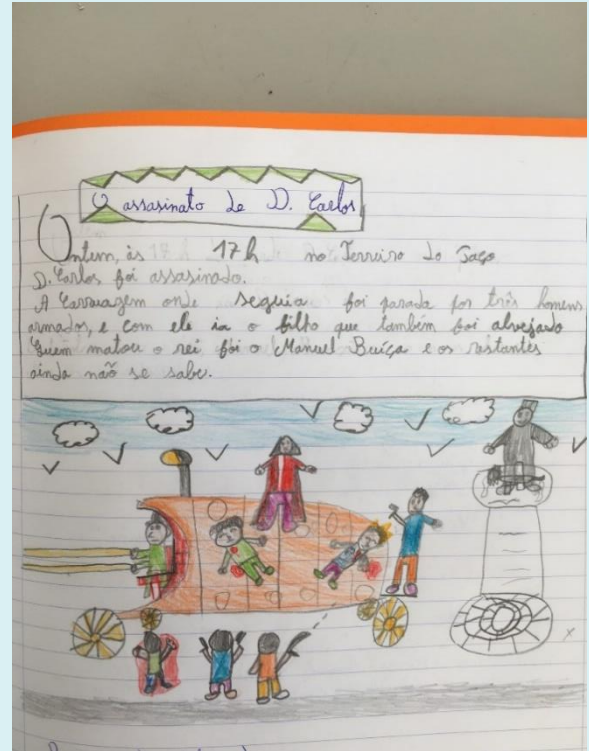 O assasinato de D. Carlos
Ontem, às 17 h 17 h no Terreiro do Paço
D. Carlos foi assasinado.
A Carruagem onde seguia foi parada por três homens
armados, e com ele ia o filho que também foi alvejado
Quem matou o rei foi o Manuel Buíça e os restantes
ainda não se sabe.